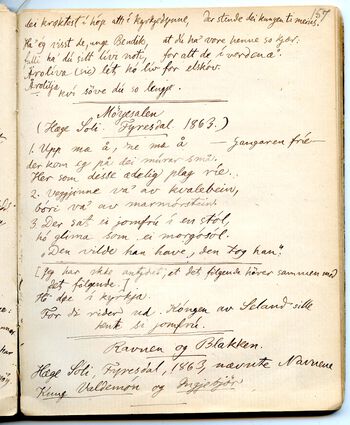 157
dei kraktest i höge att i kyrkjedynne, der stunde dei kungen te meins.
Ha eg visst de, unge Bendik, at du ha' vore henne so kjær:
fulli ha' du sitt livi nott, for alt de i verdena
Åroliva (sic) lét, ho liv for elskov.
Årolilja,
kvi söve du so lengje.
Möysalen
(Hæge Sóli. Fyresdal. 1863.)
1. Upp ma å, ne ma å — Gangaren frie —
der kom eg på dei múrar smá.
Her som desse adelig plag rie.
2. veggjinne va' av kvalebein,
bóre va' av marmórstein
3 Der sat ei jomfrú i en stól,
hó glima som ei morgósól.
"Den vilde han have, den tog han".
[Jeg har ikke antydet, at det følgende hører sammen med
det følgende.]
i kyrkja.
For di rider ud. Kóngen av Seland sille
hent si jomfrú.
Ravnen og Blakken.
Hæge Sóli, Fyresdal, 1863, nævnte Navnene
Kung Valdemon og Ingjebjör